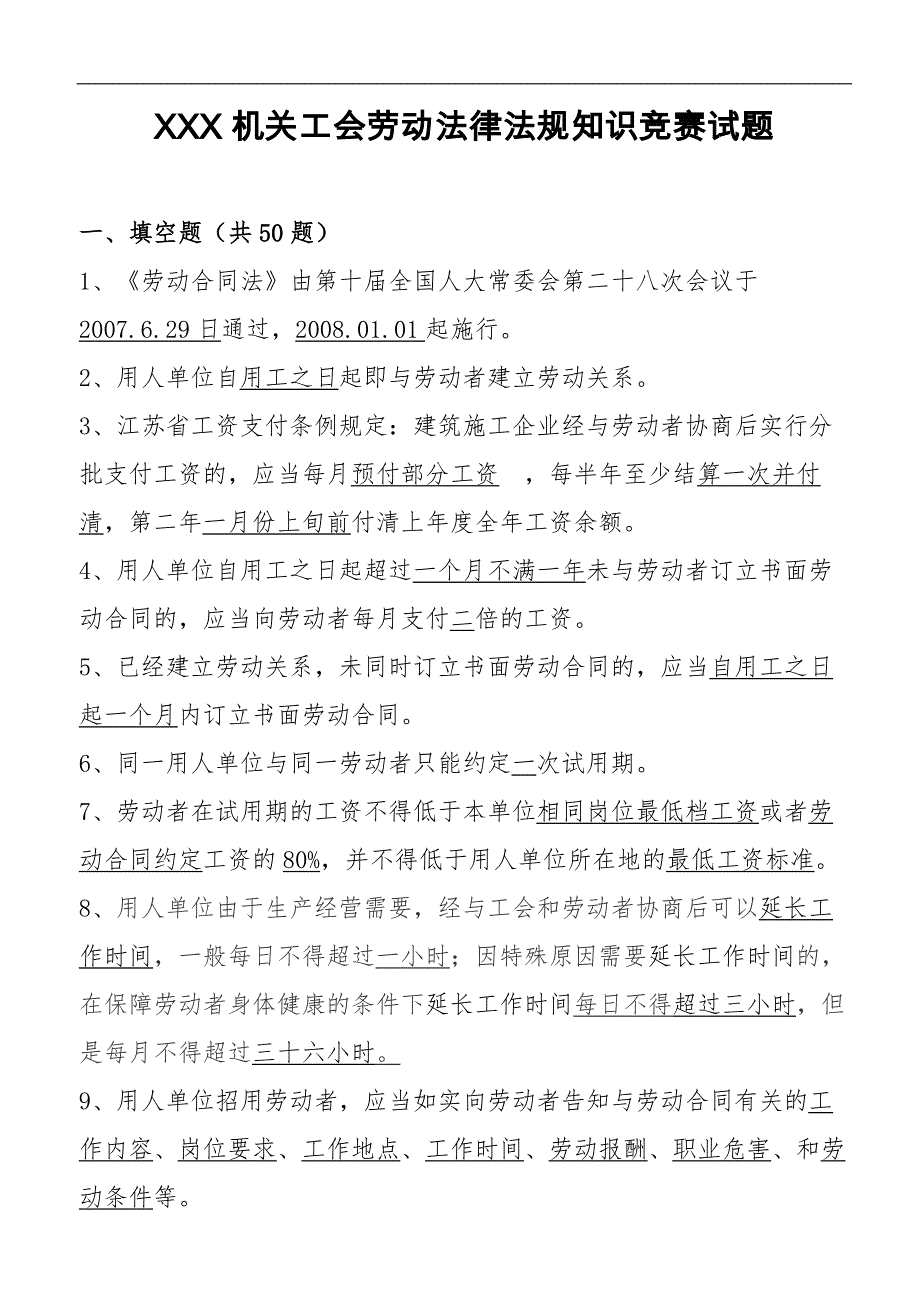 XXX 机关工会劳动法律法规知识竞赛试题
一、填空题（共 50 题）
1、《劳动合同法》由第十届全国人大常委会第二十八次会议于
2007.6.29 日通过，2008.01.01 起施行。
2、用人单位自用工之日起即与劳动者建立劳动关系。
3、江苏省工资支付条例规定：建筑施工企业经与劳动者协商后实行分
批支付工资的，应当每月预付部分工资 ，每半年至少结算一次并付
清，第二年一月份上旬前付清上年度全年工资余额。
4、用人单位自用工之日起超过一个月不满一年未与劳动者订立书面劳
动合同的，应当向劳动者每月支付二倍的工资。
5、已经建立劳动关系，未同时订立书面劳动合同的，应当自用工之日
起一个月内订立书面劳动合同。
6、同一用人单位与同一劳动者只能约定一次试用期。
7、劳动者在试用期的工资不得低于本单位相同岗位最低档工资或者劳
动合同约定工资的 80%，并不得低于用人单位所在地的最低工资标准。
8、用人单位由于生产经营需要，经与工会和劳动者协商后可以延长工
作时间，一般每日不得超过一小时；因特殊原因需要延长工作时间的，
在保障劳动者身体健康的条件下延长工作时间每日不得超过三小时，但
是每月不得超过三十六小时。
9、用人单位招用劳动者，应当如实向劳动者告知与劳动合同有关的工
作内容、岗位要求、工作地点、工作时间、劳动报酬、职业危害、和劳
动条件等。